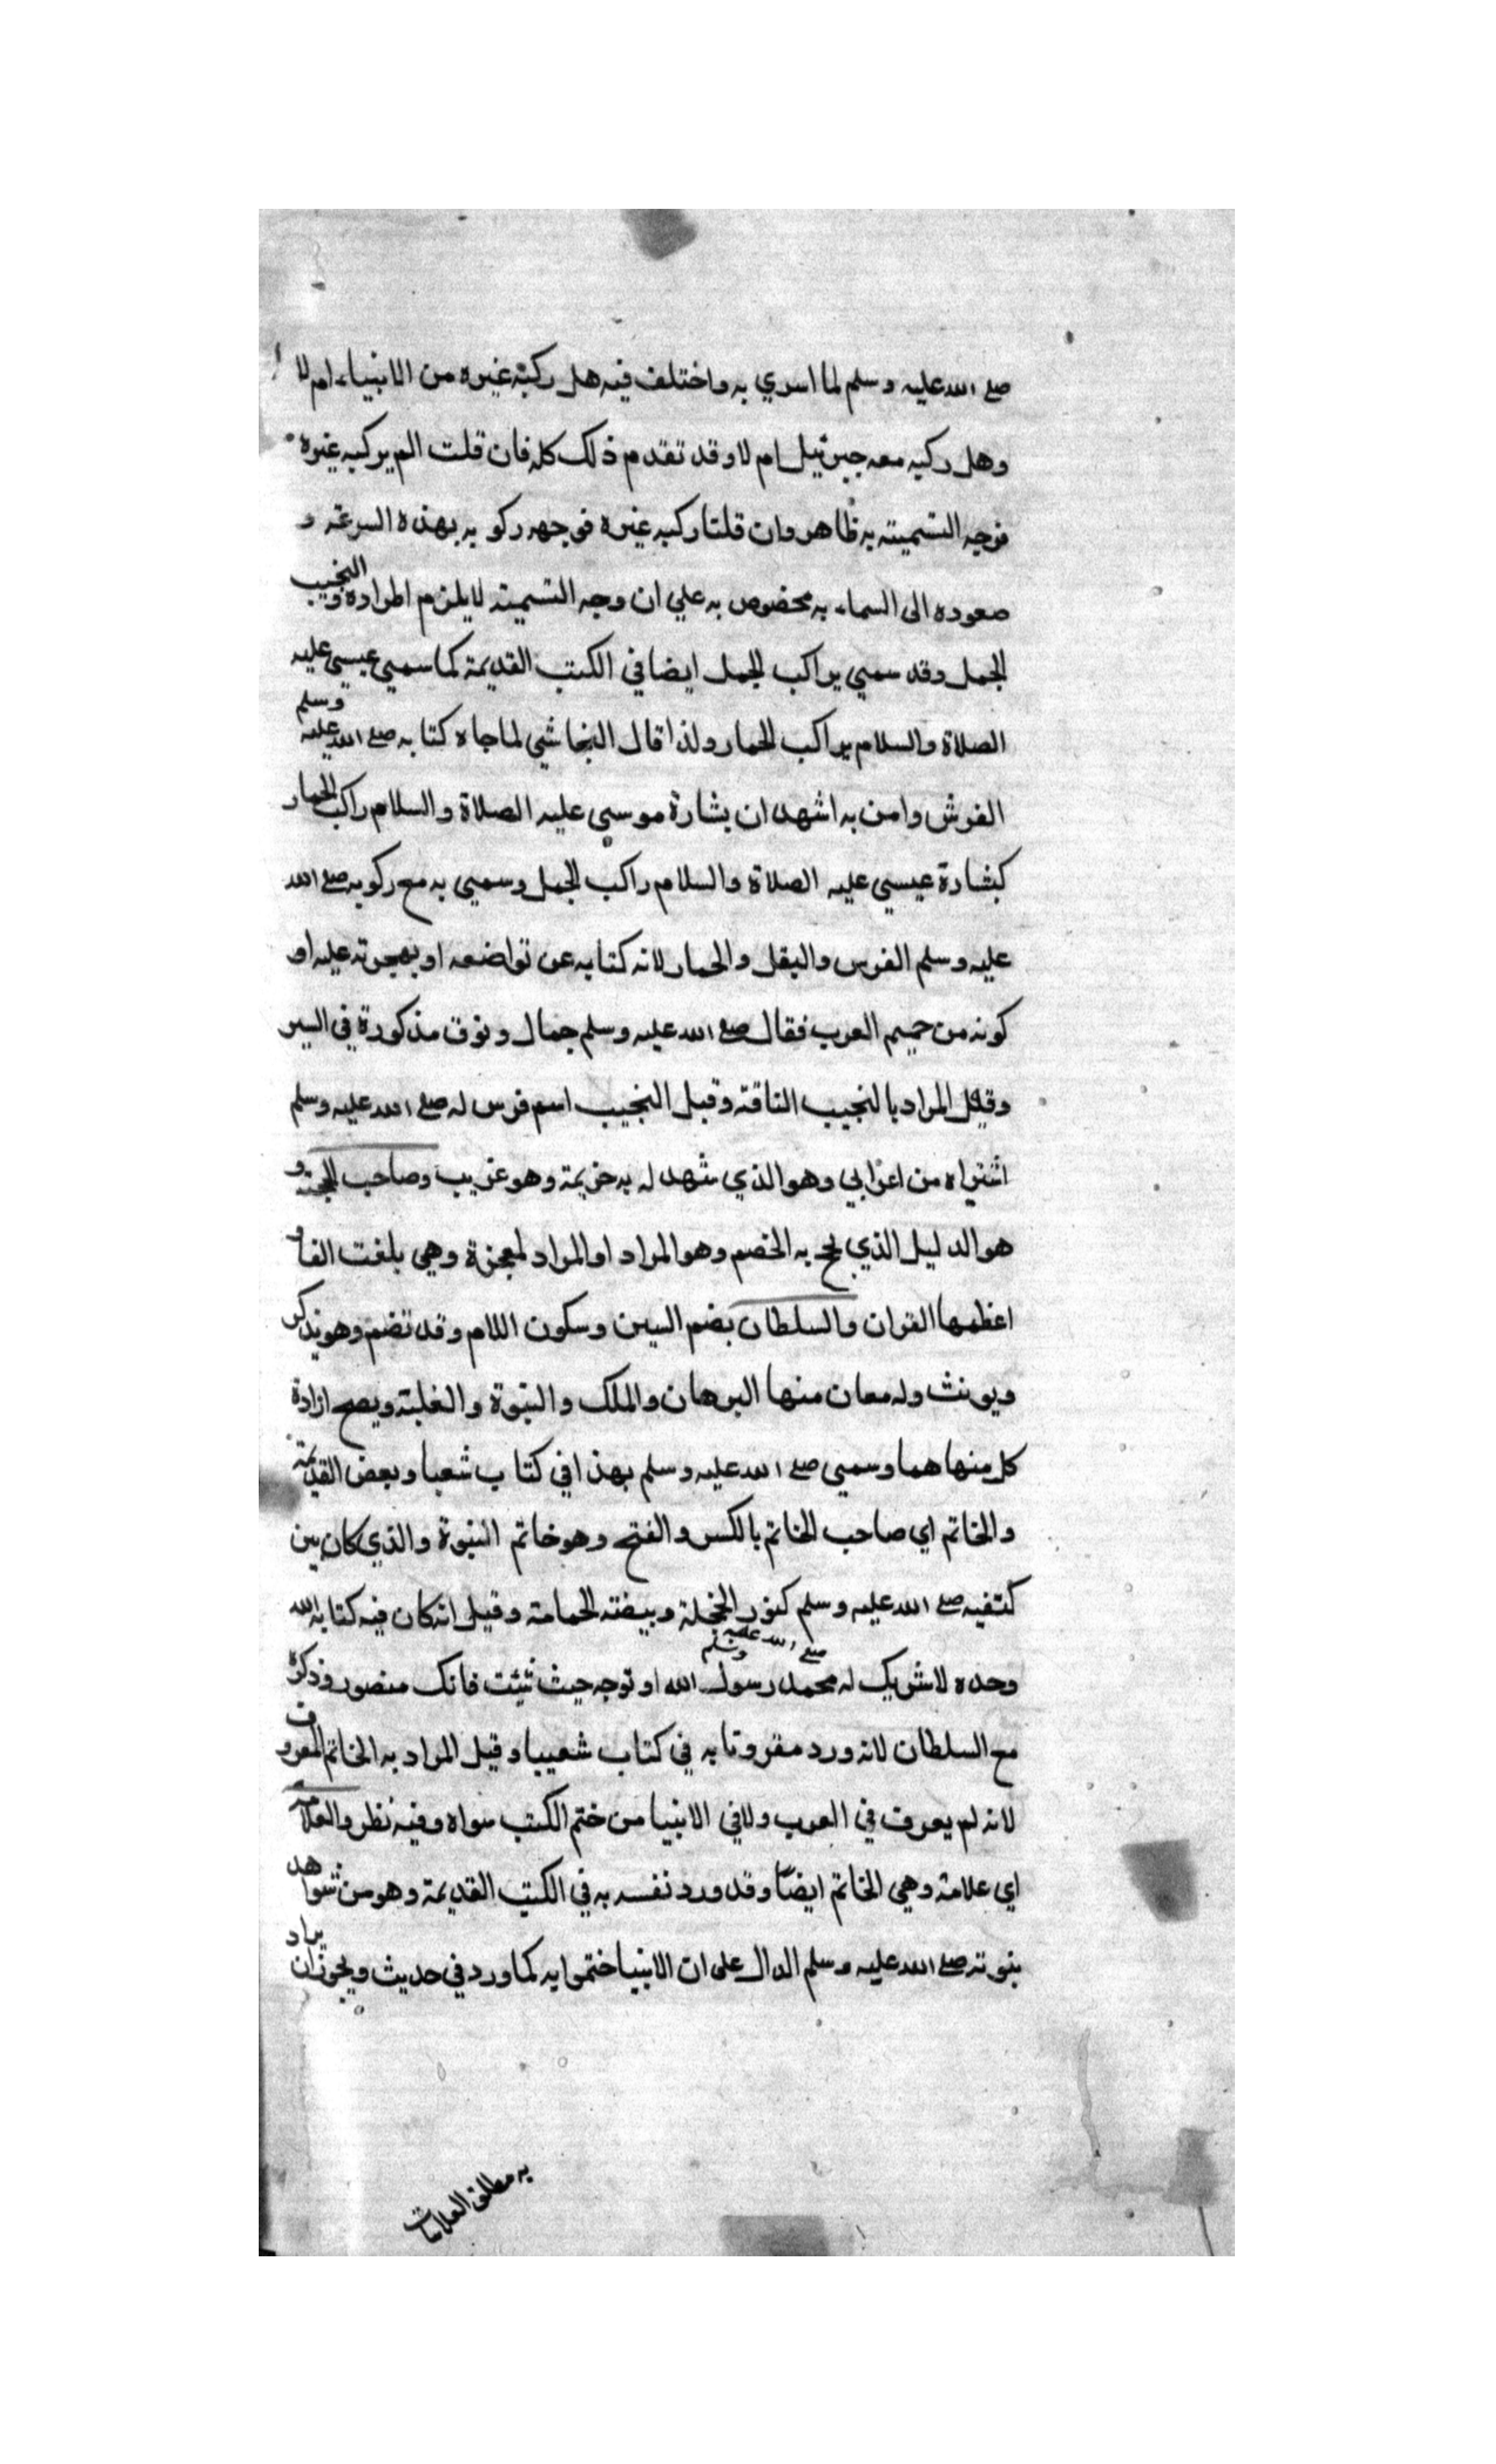 صلى الله عليه وسلم لما اسري به واختلف فيه هل ركبه غيره من الانبياء ام لا
وهل ركبه معه جبرئيل ام لا وقد تقدم ذلك كله فان قلت الم يركبه غيره
فوجه التسميته به ظاهر وان قلنا ركبه غيره فوجهه ركوبه بهذه السرعة و
صعوده الى السماء به مخصوص به علي ان وجه التسميته لا يلزم اطراده والنجيب
الجمل وقد سمي براكب الجمل ايضا في الكتب القديمة كما سمي عيسى عليه
الصلاة والسلام براكب الحمار ولذا قال النجاشي لما جاه كتابه صلى الله عليه وسلم
الفرش وامن به اشهد ان بشارة موسى عليه الصلاة والسلام راكب الحمار
كبشارة عيسي عليه الصلاة والسلام راكب الجمل وسمي به مع ركوبه صلى الله
عليه وسلم الفرس والبغل والحمار لانه كنايه عن تواضعه او بهجرته عليه او
كونه من صميم العرب فقال صلى الله عليه وسلم جمال ونوق مذكورة في السير
وقيل المراد بالنجيب الناقة وقيل النجيب اسم فرس له صلى الله عليه وسلم
اشتراه من اعرابي وهو الذي شهد له به خزيمة وهو غريب وصاحب الحجة و
هو الدليل الذي يحج به الخصم وهو المراد او المراد لمعجزة وهي بلغت الفا و
اعظمها القران والسلطان بضم السين وسكون اللام وقد تضم وهو يذكر
ويونث وله معان منها البرهان والملك والنبوة والغلبة ويصح ارادة
كل منها هما وسمي صلى الله عليه وسلم بهذا في كتاب شعيا وبعض القديمة
والخاتم اي صاحب الخاتم بالكسر والفتح وهو خاتم النبوة والذي كان بين
كتفيه صلى الله عليه وسلم كزر الحجلة وبيضته الحمامة وقيل انه كان فيه كتابه الله
وحده لا شريك له محمد رسول الله صلى الله عليه وسلم او توجه حيث شئت فانك منصور وذكره
مع السلطان لانه ورد مقرونا به في كتاب شعييا وقيل المراد به الخاتم المعروف
لانه لم يعرف في العرب ولا في الانبيا من ختم الكتب سواه وفيه نظر والعلامة
اي علامة وهي الخاتم ايضا وقد ورد نفسه به في الكتب القديمة وهو من شواهد
نبوته صلى الله عليه وسلم الدال على ان الانبيا ختموا به كما ورد في حديث ويجوز ان يراد
به مطلق العلامات